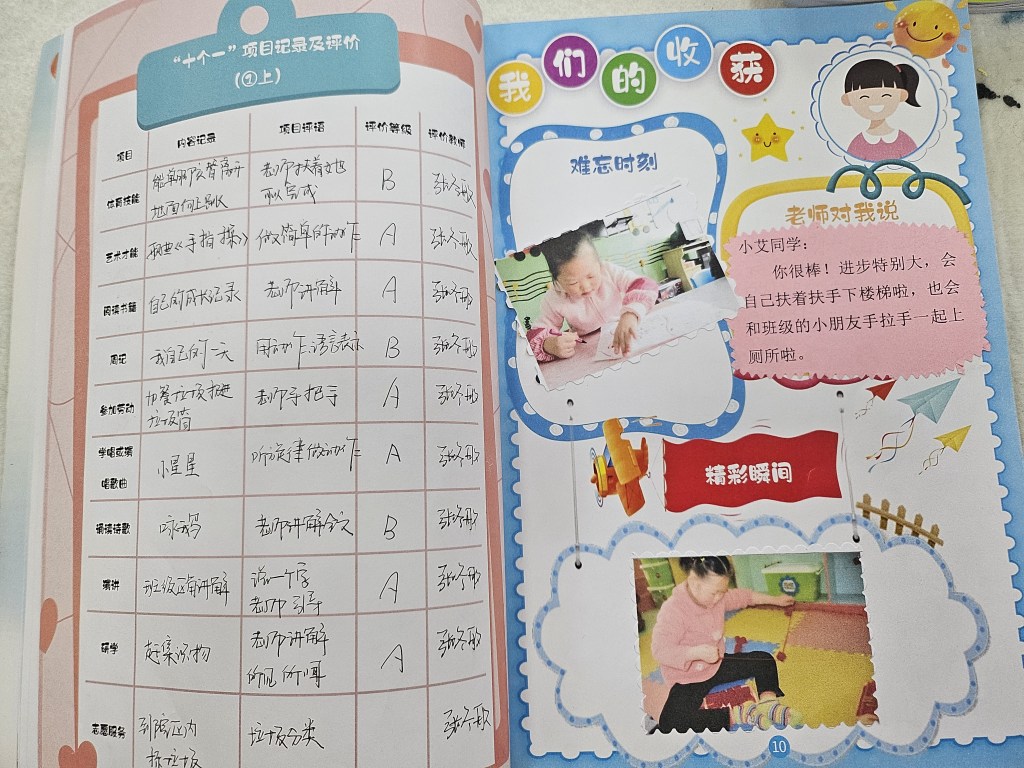 “十个一”项目记录及评价
(①上)
项目 内容记录 项目评语 评价等级 评价教师
体育技能 能单脚 离开 老师扶着她 B
地面向上跳 可以完成
艺术才能 《手指操》 做简单的动作 A
阅读书籍 自己的成长记录 老师讲解 A
周记 我自己的一天 用动作语言表示 B
参加劳动 加餐垃圾扔进 老师手把手 A
垃圾筒
学唱或演
唱歌曲 小星星 听旋律做动作 A
诵读诗歌 咏鹅 老师讲解含义 B
演讲 班级区角讲解 说一个字 A
老师引导
研学 赶集识物 老师讲解 A
所见所闻
志愿服务 到院区内 垃圾分类
拣垃圾
我们的收获
难忘时刻
老师对我说
小艾同学:
你很棒!进步特别大,会
自己扶着扶手下楼梯啦,也会
和班级的小朋友手拉手一起上
厕所啦。
精彩瞬间
10